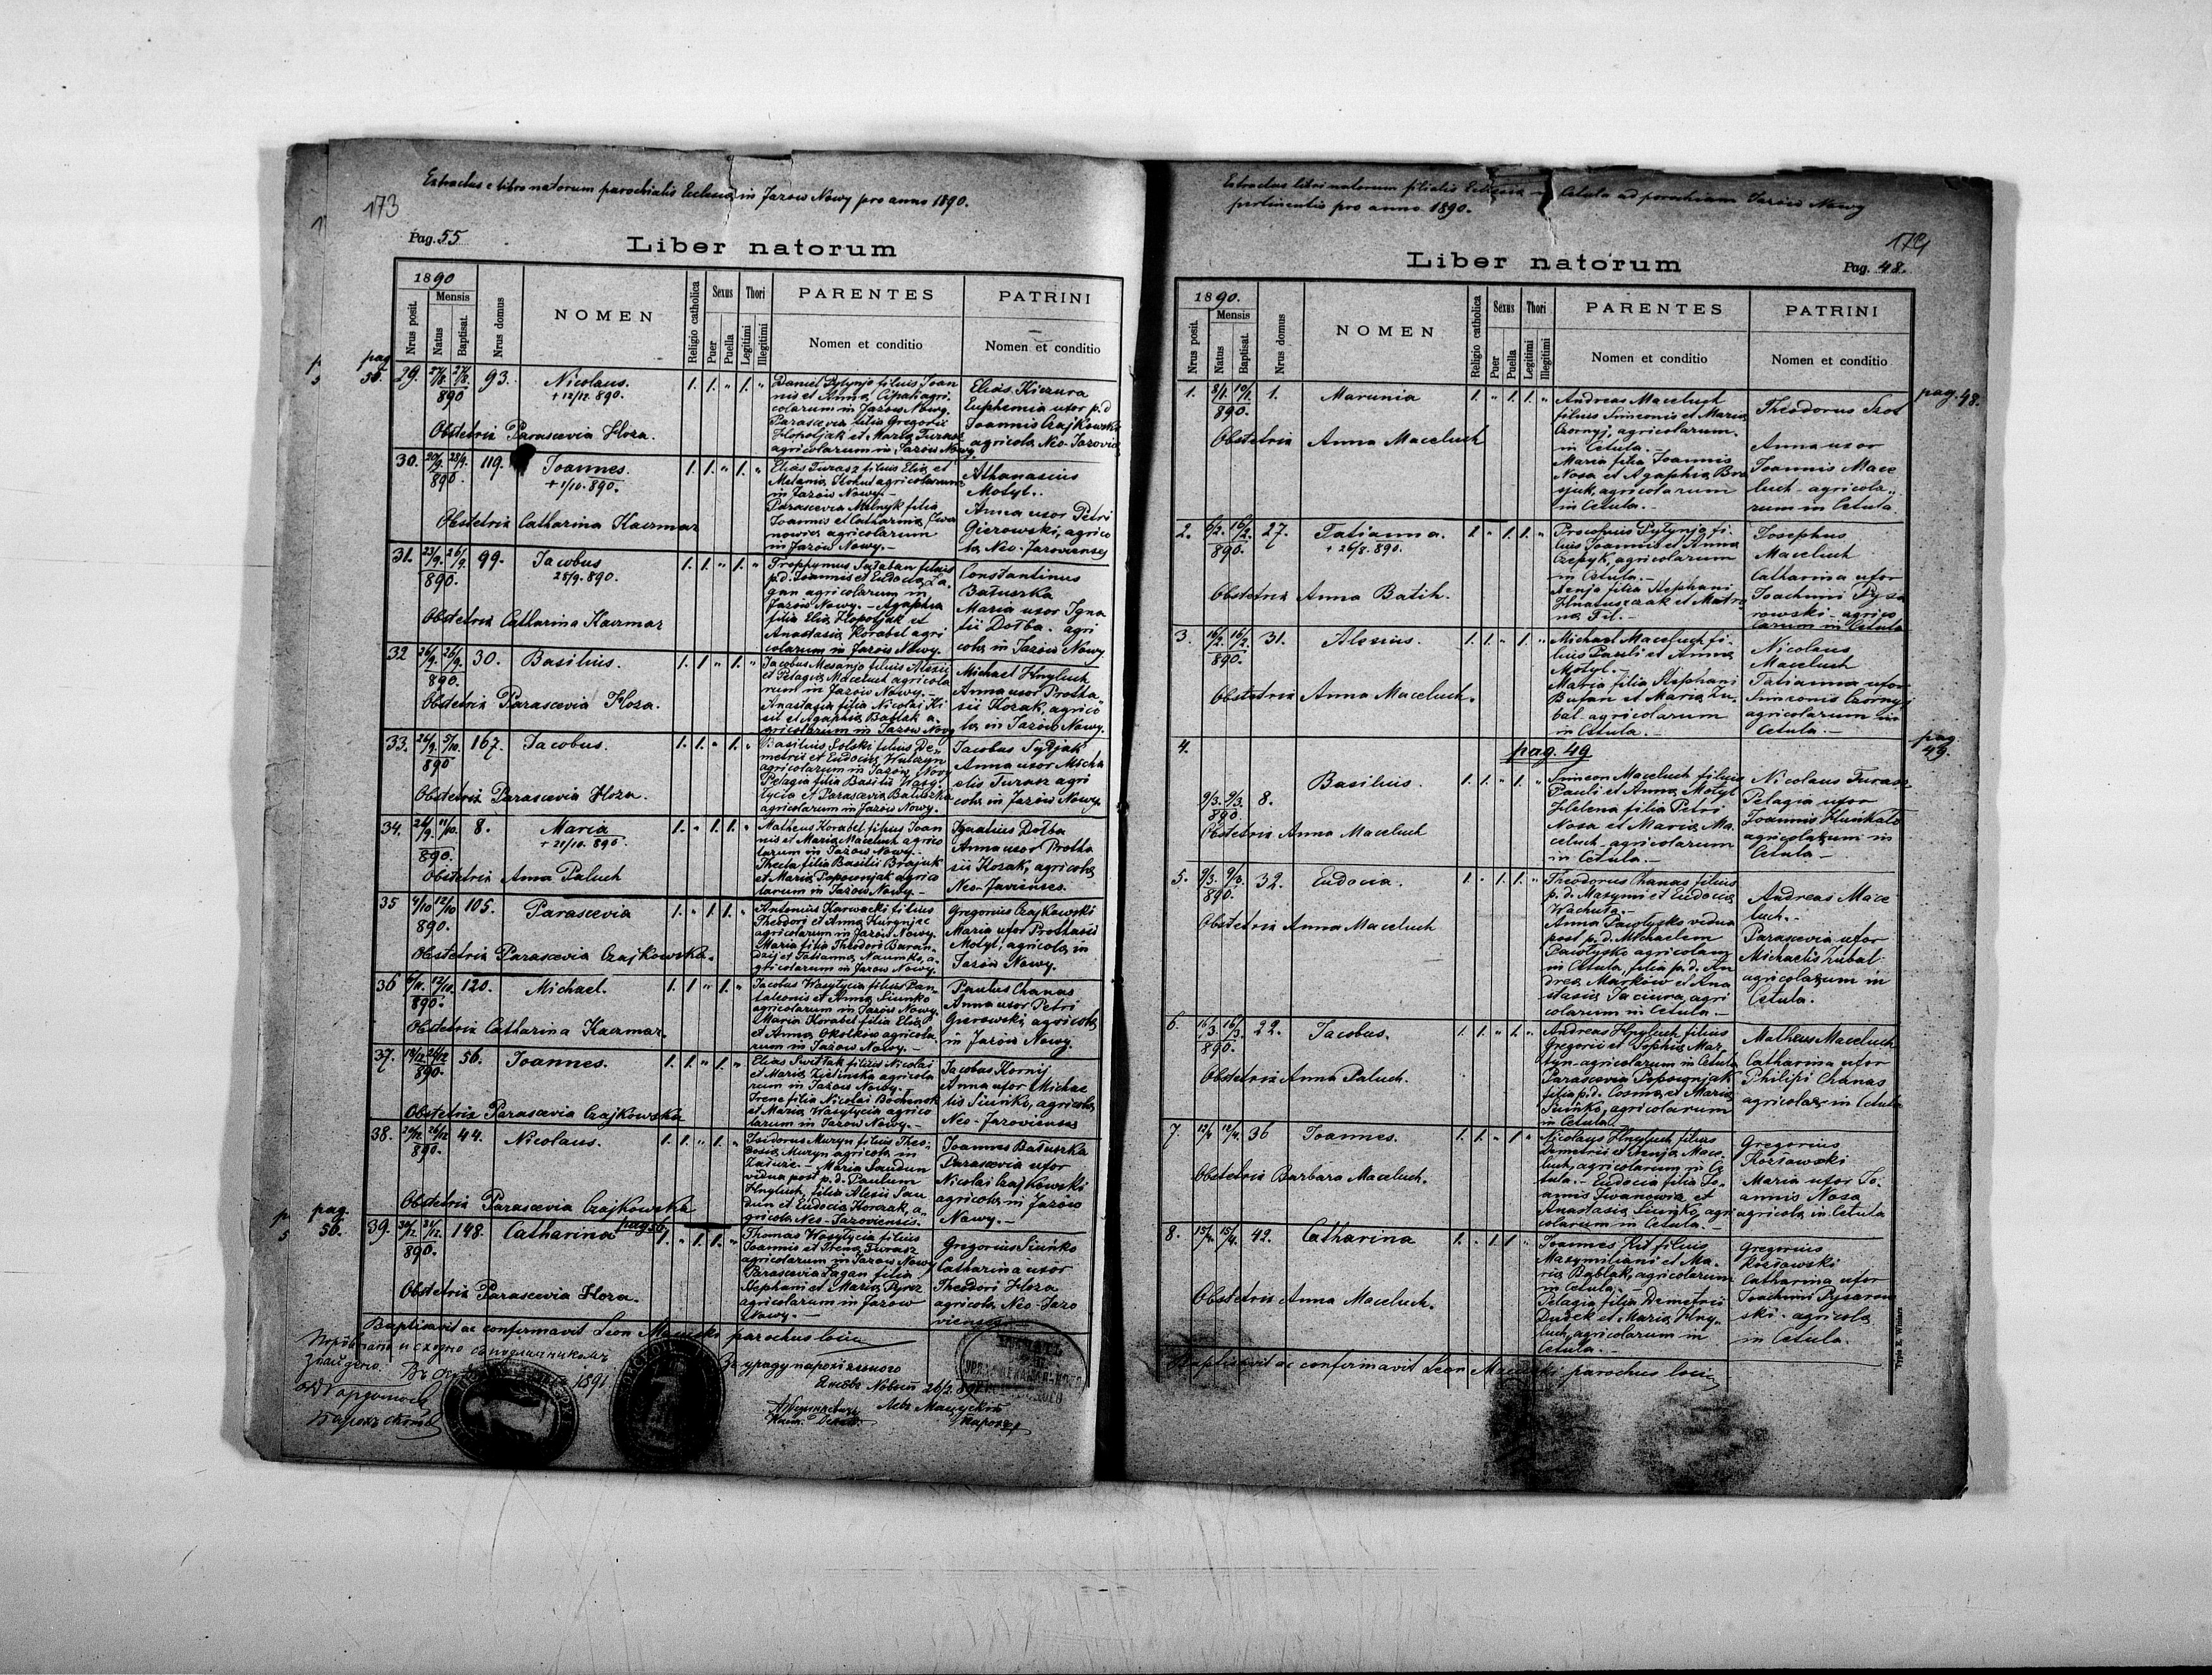 Extractus e libro natorum parochialis Ecclesiæ in Jazów Nowy pro anno 1890.
173
Pag. 55
Liber natorum
1890
Mensis
Nrus posit.
Natus
Baptisat.
Nrus domus
NOMEN
Religio catholica
Sexus
Puer
Puella
Thori
Legitimi
Illegitimi
PARENTES
Nomen et conditio
PATRINI
Nomen et conditio
29. 27/8. 27/8. 93. Nicolaus. 1. 1. " 1. "
890 + 12/12. 890.
Obstetrix Parascevia Hoza.
Daniel Pytynjo filius Joan
nis et Anna Cipali agri-
colarum in Jazów Nowy.
Parascevia filia Gregorii
Hopotjak et Maria Turasz
agricolarum in Jazów Nowy.
Elias Kiczura
Euphemia uxor p.d
Joannis Czajkowski
agricolæ Neo-Jazovien
30. 20/9. 28/9. 119. Joannes. 1. 1. " 1. "
890. + 1/10. 890.
Obstetrix Catharina Kaczmar
Elias Turasz filius Eliæ et
Melaniæ Kohut agricolarum
in Jazów Nowy.-
Parascevia Melnyk filia
Joannis et Catharinæ Iwa
nowicz agricolarum
in Jazów Nowy.-
Athanasius
Motyl..
Anna uxor Petri
Gierowski, agrico
læ Neo-Jazovienses
31. 23/9. 26/9. 99. Jacobus 1. 1. " 1. "
890. 28/9. 890.
Obstetrix Catharina Kaczmar
Trophymus Sataban filius
p.d. Joannis et Eudociæ Ła
gan agricolarum in
Jazów Nowy. - Agaphia
filia Eliæ Hopotjak et
Anastasiæ Korabel agri
colarum in Jazów Nowy.
Constantinus
Batuszka
Maria uxor Igna
tii Dołba. agri
colæ in Jazów Nowy
32 26/9. 26/9. 30. Basilius. 1. 1 " 1. "
890.
Obstetrix Parascevia Hoza.
Jacobus Mesanjo filius Alexii
et Pelagiæ Maceluch agricola
rum in Jazów Nowy.-
Anastasia filia Nicolai Ki
sil et Agaphiæ Bablak a-
gricolarum in Jazów Nowy
Michael Hnyluch
Anna uxor Protha
sii Kozak, agrico
læ in Jazów Nowy.
33. 26/9. 5/10. 167. Jacobus. 1. 1. " 1. "
890
Obstetrix Parascevia Hoza.
Basilius Solski filius De-
metrii et Eudociæ Wulczyn
agricolarum in Jazów Nowy
Pelagia filia Basilii Wasy
lycia et Parasceviæ Batuszka
agricolarum in Jazów Nowy.
Jacobus Sydjak
Anna uxor Micha
elis Turasz agri
colæ in Jazów Nowy.
34. 26/9. 11/10. 8. Maria 1. " 1. 1. "
890. + 21/10. 890.
Obstetrix Anna Paluch
Matheus Korabel filius Joan
nis et Mariæ Maceluch agrico
larum in Jazów Nowy.-
Thecla filia Basilii Brajuk
et Mariæ Popownjak agrico
larum in Jazów Nowy.-
Ignatius Dołba
Anna uxor Protha
sii Kozak, agricolæ
Neo-Javienses.
35 4/10 12/10 105. Parascevia 1. " 1. 1. "
890.
Obstetrix Parascevia Czajkowska.
Antonius Karwacki filius
Theodori et Anna
agricolarum in Jazów Nowy.
Maria filia Theodori Baran-
dzij et Tatiannæ Naumko, a-
gricolarum in Jazów Nowy.
Gregorius Czajkowski
Maria uxor Prothasii
Motyl, agricolæ in
Jazów Nowy.
36 120. Michael. 1. 1 " 1. "
890.
Obstetrix Catharina Kaczmar.
Jacobus Wasylycia filius Pan-
taleonis et Annæ Siunko
agricolarum in Jazów Nowy.
Maria Korabel filia Eliæ
et Annæ agricola
rum in Jazów Nowy.-
Paulus Chanas
Anna uxor Petri
Gierowski, agricolæ
in Jazów Nowy.
37. 56. Joannes. 1. 1. " 1. "
890.
Obstetrix Parascevia Czajkowska
Elias Switłak filius Nicolai
et Mariæ Zielinska agricola
rum in Jazów Nowy.-
Irene filia Nicolai Bochenok
et Mariæ Wasylycia agrico
larum in Jazów Nowy.-
Jacobus Kornij
Anna uxor Michae
lis Siunko, agricolæ
Neo-Jazovienses
38. 26/12 44. Nicolaus. 1. 1. " 1. "
890.
Obstetrix Parascevia Czajkowska
Isidorus Muryn filius Theo-
Muryn agricolæ in
Maria Saudun
vidua post p.d. Paulum
Hnyluch, filia Alexii Sau
dun et Eudociæ Korczak, a-
gricolæ Neo-Jazoviensis.
Joannes Batuszka
Parascevia uxor
Nicolai Czajkowski
agricolæ in Jazów
Nowy.-
pag. 56.
39. 148. Catharina 1. " 1. 1. "
890.
Obstetrix Parascevia Hoza.
Thomas Wasylycia filius
Joannis et Irenæ Turasz
agricolarum in Jazów Nowy
Parascevia Łagan filia
Stephani et Mariæ Pyrcz
agricolarum in Jazów
Nowy.-
Gregorius Siunko
Catharina uxor
Theodori Hoza
agricolæ Neo-Jazo
viensis
Baptisavit ac confirmavit Leon parochus loci
pag. 56.
Extractus libri natorum filialis Ecclesiæ Cetula ad parochiam Jazów Nowy
pertinentis pro anno 1890.
174
Liber natorum
Pag. 48.
1890.
Mensis
Nrus posit.
Natus
Baptisat.
Nrus domus
NOMEN
Religio catholica
Sexus
Puer
Puella
Thori
Legitimi
Illegitimi
PARENTES
Nomen et conditio
PATRINI
Nomen et conditio
pag. 48.
1. 8/1. 10/1. 1. Marunia 1. " 1. 1. "
890.
Obstetrix Anna Maceluch
Andreas Maceluch
filius Simeonis et Mariæ
Czornyj, agricolarum
in Cetula.-
Maria filia Joannis
Nosa et Agaphiæ Bra
sjuk, agricolarum
in Cetula.-
Theodorus Szot
Anna uxor
Joannis Mace
luch - agricola
rum in Cetula.
2. 6/2. 16/2. 27. Tatianna. 1. " 1. 1. "
890. + 26/8. 890.
Obstetrix Anna Batih.
Procopius Pytynjo fi-
lius Joannis et Annæ
Czepyk, agricolarum
in Cetula.-
Xenja filia Stephani
Hnatuszczak et Matro
næ Fil.-
Josephus
Maceluch
Catharina uxor
Joachimi Pysa
rowski - agrico
larum in Cetula
3. 16/2. 16/2. 31. Alexius. 1. 1. " 1. "
890.
Obstetrix Anna Maceluch.
Michael Maceluch fi-
lius Pauli et Annæ
Motyl.-
Maria filia Stephani
Bufan et Mariæ Zu-
bal - agricolarum
in Cetula.-
Nicolaus
Maceluch
Tatianna uxor
Simeonis Czornyj
agricolarum in
Cetula.-
pag. 49
pag. 49.
4. 9/3. 9/3. 8. Basilius. 1. 1. " 1. "
890.
Obstetrix Anna Maceluch
Simeon Maceluch filius
Pauli et Annæ Motyl
Helena filia Petri
Nosa et Mariæ Ma-
celuch - agricolarum
in Cetula.-
Nicolaus Turasz
Pelagia uxor
Joannis Hunkało
agricolarum in
Cetula.-
5. 9/3. 9/3. 32. Eudocia. 1. " 1. 1. "
890.
Obstetrix Anna Maceluch
Theodorus Chanas filius
p.d. Maxymi et Eudociæ
Wachuta.-
Anna Pawłysko vidua
post p.d. Michaelem
Pawłysko agricolam
in Cetula, filia p.d. An
dreæ Markow et Ana
stasiæ Jaciura, agri
colarum in Cetula.-
Andreas Mace
luch.-
Parascevia uxor
Michaelis Zubal
agricolarum in
Cetula.
6. 16/3. 16/3. 22. Jacobus. 1. 1. " 1. "
890.
Obstetrix Anna Paluch.
Andreas Hnyluch filius
Gregorii et Sophiæ Mar
tyn - agricolarum in Cetula
Parascevia Popownjak
filia p.d. Cosmæ et Mariæ
Siunko, agricolarum
in Cetula.
Matheus Maceluch
Catharina uxor
Philipi Chanas
agricolæ in Cetula
7. 12/4 12/4. 36 Joannes. 1. 1. " 1 "
Obstetrix Barbara Maceluch.
Nicolaus Hnyluch filius
Demetrii et Xenjæ Mace-
luch, agricolarum in Ce
tula.- Eudocia filia Jo-
annis Iwanowicz et
Anastasiæ Siunko, agri
colarum in Cetula.-
Gregorius
Kozławski
Maria uxor Jo-
annis Nosa
agricolæ in Cetula
8. 15/4. 15/4. 42. Catharina 1. " 1. 1 "
Obstetrix Anna Maceluch.
Joannes Kit filius
Maxymiliani et Ma-
riæ Bablak, agricolarum
in Cetula.-
Pelagia filia Demetrii
Dudek et Mariæ Hny-
luch, agricolarum in
Cetula.-
Gregorius
Kozławski
Catharina uxor
Joachimi Pysarow
ski - agricolæ
in Cetula.
Baptisavit ac confirmavit Leon parochus loci
Typis E. Winiarz